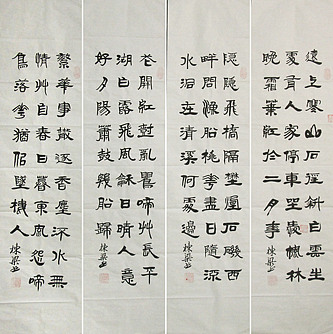 遠上寒山石徑斜白雲生
處有人家停車坐愛楓林
晚霜葉紅於二月
隱隱飛橋隔野煙石磯西
畔問漁船桃花盡日隨流
水洞在清溪何處邊
花開紅樹亂鶯啼艸長平
湖白鷺飛風龢日晴人意
好夕陽簫鼓幾船歸
繁華事散逐香塵流水無
情艸自春日暮東風怨啼
鳥落花猶似墜樓人